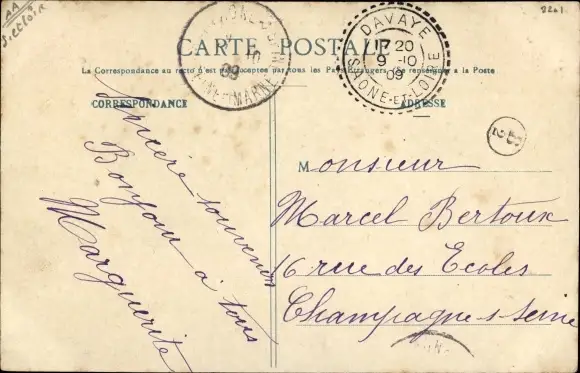 AA
S.etLoire
2261
CARTE POSTALE
La Correspondance au recto n'est pas acceptée par tous les Pays Étrangers (Se renseigner à la Poste
CORRESPONDANCE
ADRESSE
DAVAYE
17 20
9 -10
09
SAONE-ET-LOIRE
10
09
MARNE
Sincère souvenir
Bonjour à tous
Marguerite
Monsieur
Marcel Bertoux
16 rue des Ecoles
Champagne s Seine